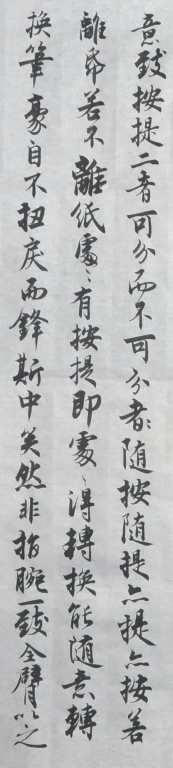 意致按提二者可分而不可分者随按随提亦提亦按善
離帋若不離紙處〻有按提即處〻得轉換能随意轉
換筆豪自不扭戾而鋒斯中矣然非指腕一致全臂以之